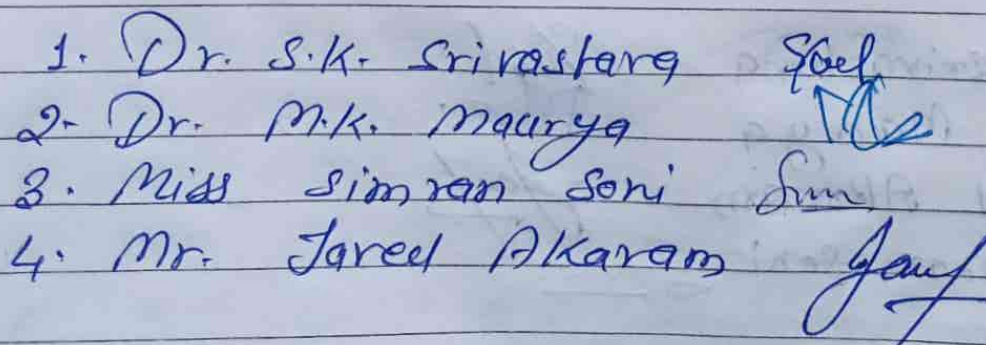 1. Dr. S.K. Srivastava
2- Dr. M.K. Maurya
3. Miss Simran Soni
4. Mr. Javed Akaram